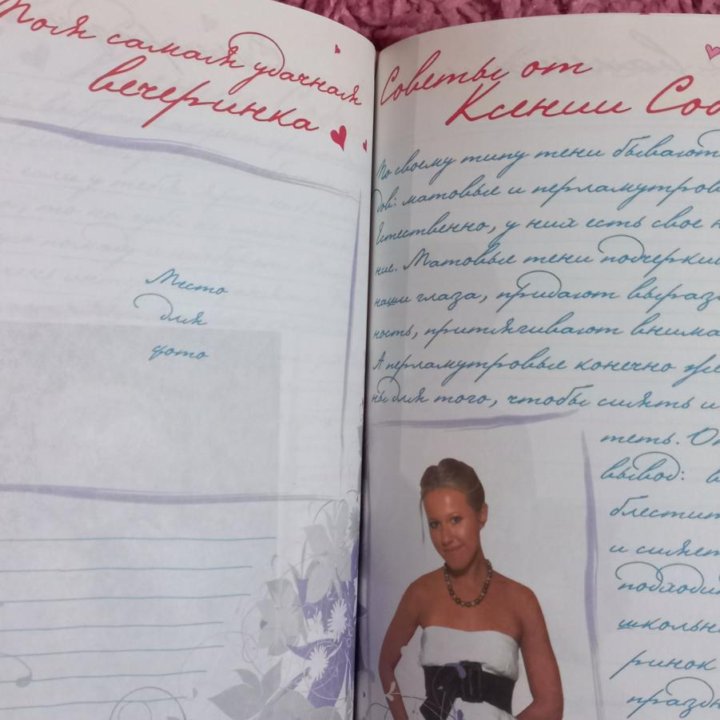 Моя самая удачная
вечеринка
Место
для
фото
Советы от
Ксении Соб
По своему типу тени бывают
дов: матовые и перламутров
Естественно, у них есть свое н
ние. Матовые тени подчерки
наши глаза, придают выраз
ность, притягивают внима
А перламутровые конечно же
ны для того, чтобы сиять и
теть. От
вывод: в
блестит
и сияет
подходи
школьн
ринок
праздн